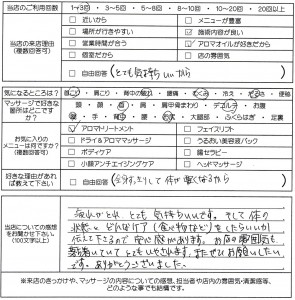 当店のご利用回数 1~3回 ・ 5~8回 ・ 8~10回 ・ 10~20回 ・ 20回以上
当店の来店理由
(複数回答可)
□ 近いから □ メニューが豊富
□ 場所が行きやすい ☑ 施術内容が良い
□ 営業時間が合う ☑ アロマオイルが好きだから
□ 個室だから □ 店の雰囲気
□ 自由回答 (とても気持ちいいから)
気になるところは?
マッサージで好きな
箇所はどこですか?
頭 ・ 顔 ・ 首 ・ 肩 ・ 肩甲骨まわり ・ デコルテ ・ お腹
腰 ・ 手
ふくらはぎ ・ 足裏
お気に入りの
メニューは何ですか?
(複数回答可)
☑ アロマトリートメント □ フェイスリフト
□ ドライ&アロママッサージ □ うるおい美容液パック
□ ボディケア □ 腸セラピー
□ 小顔アンチエイジングケア □ ヘッドマッサージ
好きな理由があれば教えて下さい
□ 自由回答 (全身すっきりして体が軽くなるから)
当店についての感想
をお聞かせ下さい。
(100文字以上)
疲れがとれ、とても気持ちいいです。そして体の
状態と どんなケア(食べ物など)をしたらいいか
伝えて下さるので 安心感があります。お店の雰囲気も
落着いていてとてもいやされます。またぜひお願いしたい
です。ありがとうございました。
※来店のきっかけや、マッサージの内容についての感想、担当者や店内の雰囲気・清潔感等、
どのような事でも結構です。